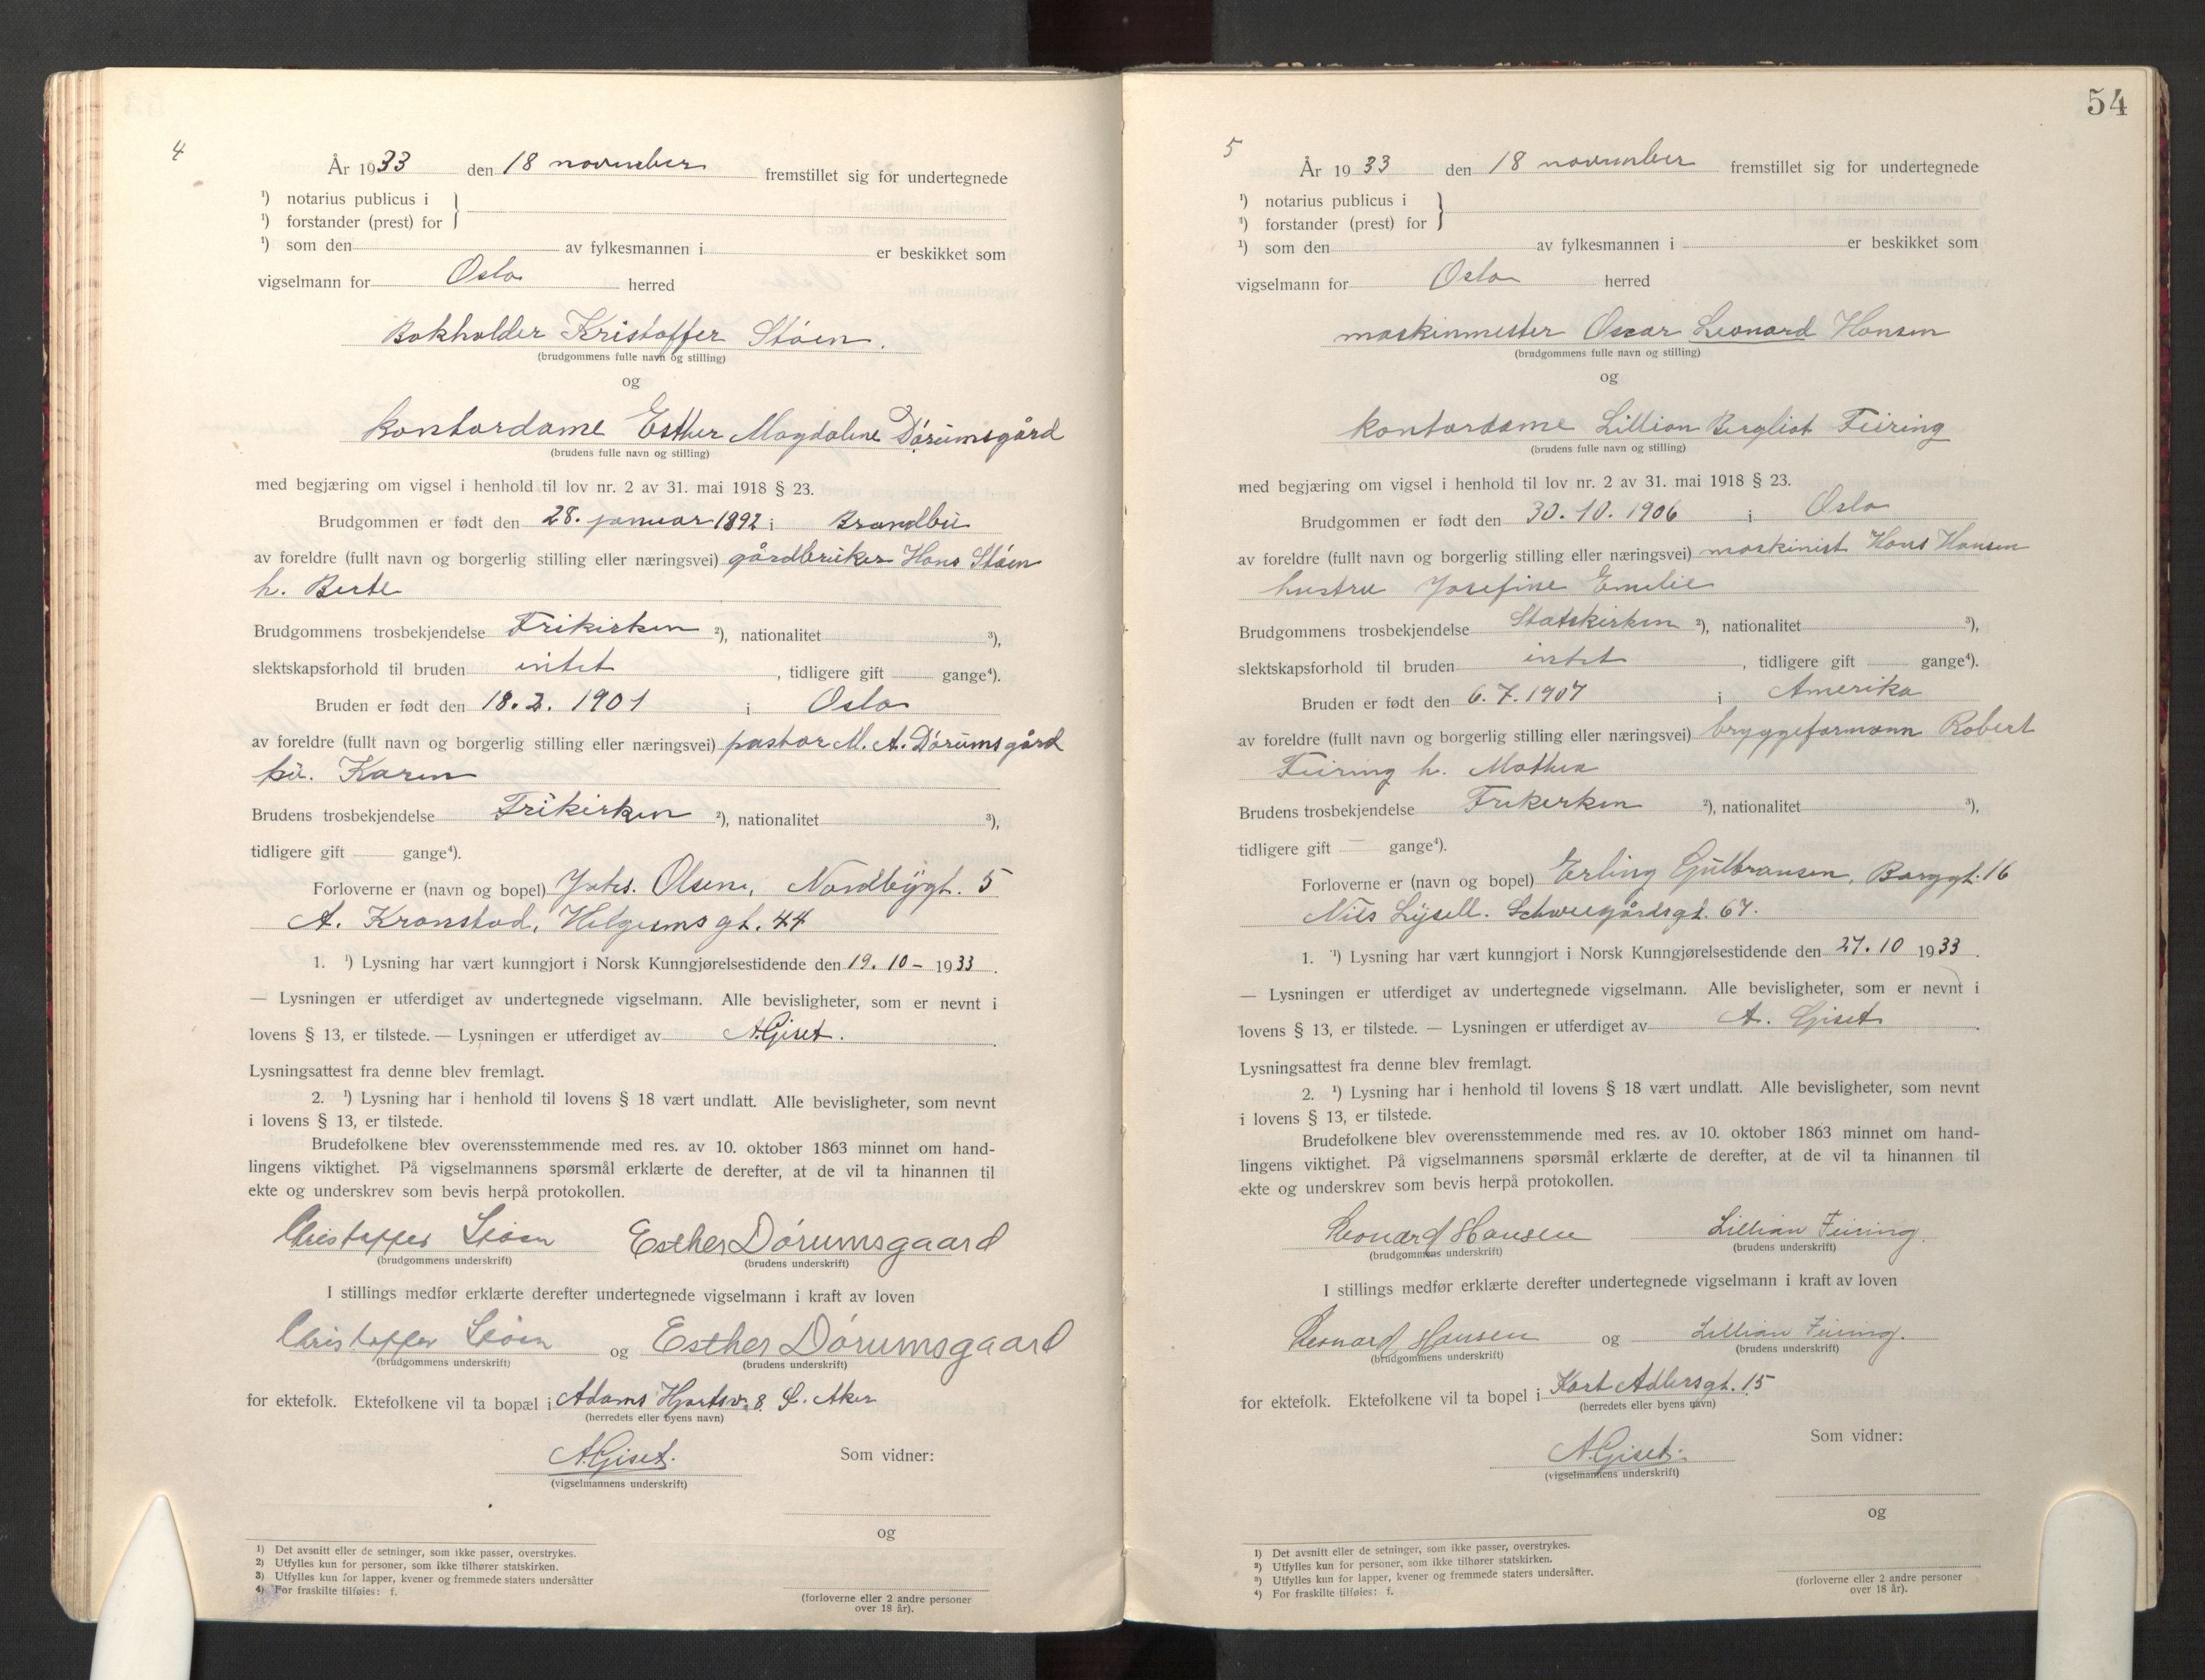 4
År 1933 den 18 november fremstillet sig for undertegnede
¹) notarius publicus i
¹) forstander (prest) for }
¹) som den av fylkesmannen i er beskikket som
vigselmann for Oslo herred
Bokholder Kristoffer Støen.
(brudgommens fulle navn og stilling)
og
Kontordame Esther Magdalene Dørumsgård
(brudens fulle navn og stilling)
med begjæring om vigsel i henhold til lov nr. 2 av 31. mai 1918 § 23.
Brudgommen er født den 28. januar 1892 i Brandbu
av foreldre (fullt navn og borgerlig stilling eller næringsvei) gårdbruker Hans Støen
h. Berte
Brudgommens trosbekjendelse Frikirken ²), nationalitet ³),
slektskapsforhold til bruden intet , tidligere gift gange⁴).
Bruden er født den 18. 2. 1901 i Oslo
av foreldre (fullt navn og borgerlig stilling eller næringsvei) pastor M. A. Dørumsgård
hu. Karen
Brudens trosbekjendelse Frikirken ²), nationalitet ³),
tidligere gift gange⁴).
Forloverne er (navn og bopel) Johs. Olsen, Nordbygt. 5
A. Kronstad, Helgesensgt. 44
1. ¹) Lysning har vært kunngjort i Norsk Kunngjørelsestidende den 19. 10 - 1933.
— Lysningen er utferdiget av undertegnede vigselmann. Alle bevisligheter, som er nevnt i
lovens § 13, er tilstede. — Lysningen er utferdiget av A. Giset.
Lysningsattest fra denne blev fremlagt.
2. ¹) Lysning har i henhold til lovens § 18 vært undlatt. Alle bevisligheter, som nevnt
i lovens § 13, er tilstede.
Brudefolkene blev overensstemmende med res. av 10. oktober 1863 minnet om hand-
lingens viktighet. På vigselmannens spørsmål erklærte de derefter, at de vil ta hinannen til
ekte og underskrev som bevis herpå protokollen.
Christoffer Støen Esther Dørumsgaard
(brudgommens underskrift) (brudens underskrift)
I stillings medfør erklærte derefter undertegnede vigselmann i kraft av loven
Christoffer Støen og Esther Dørumsgaard
(brudgommens underskrift) (brudens underskrift)
for ektefolk. Ektefolkene vil ta bopæl i Adams Hjortsv. 8. Ø. Aker
(herredets eller byens navn)
A. Giset. Som vidner:
(vigselmannens underskrift)
og
(forloverne eller 2 andre personer
over 18 år).
1) Det avsnitt eller de setninger, som ikke passer, overstrykes.
2) Utfylles kun for personer, som ikke tilhører statskirken.
3) Utfylles kun for lapper, kvener og fremmede staters undersåtter
4) For fraskilte tilføies: f.
54
5
År 1933 den 18 november fremstillet sig for undertegnede
¹) notarius publicus i
¹) forstander (prest) for }
¹) som den av fylkesmannen i er beskikket som
vigselmann for Oslo herred
maskinmester Oscar Leonard Hansen
(brudgommens fulle navn og stilling)
og
kontordame Lillian Bergliot Feiring
(brudens fulle navn og stilling)
med begjæring om vigsel i henhold til lov nr. 2 av 31. mai 1918 § 23.
Brudgommen er født den 30. 10. 1906 i Oslo
av foreldre (fullt navn og borgerlig stilling eller næringsvei) maskinist Hans Hansen
hustru Josefine Emilie
Brudgommens trosbekjendelse Statskirken ²), nationalitet ³),
slektskapsforhold til bruden intet , tidligere gift gange⁴).
Bruden er født den 6. 7. 1907 i Amerika
av foreldre (fullt navn og borgerlig stilling eller næringsvei) bryggeformann Robert
Feiring h. Mathea
Brudens trosbekjendelse Frikirken ²), nationalitet ³),
tidligere gift — gange⁴).
Forloverne er (navn og bopel) Erling Gulbransen, Borggt. 16
Nils Lysell. Schweigårdsgt. 67.
1. ¹) Lysning har vært kunngjort i Norsk Kunngjørelsestidende den 27. 10 1933.
— Lysningen er utferdiget av undertegnede vigselmann. Alle bevisligheter, som er nevnt i
lovens § 13, er tilstede. — Lysningen er utferdiget av A. Giset.
Lysningsattest fra denne blev fremlagt.
2. ¹) Lysning har i henhold til lovens § 18 vært undlatt. Alle bevisligheter, som nevnt
i lovens § 13, er tilstede.
Brudefolkene blev overensstemmende med res. av 10. oktober 1863 minnet om hand-
lingens viktighet. På vigselmannens spørsmål erklærte de derefter, at de vil ta hinannen til
ekte og underskrev som bevis herpå protokollen.
Leonard Hansen Lillian Feiring.
(brudgommens underskrift) (brudens underskrift)
I stillings medfør erklærte derefter undertegnede vigselmann i kraft av loven
Leonard Hansen og Lillian Feiring.
(brudgommens underskrift) (brudens underskrift)
for ektefolk. Ektefolkene vil ta bopel i Kort Adlersgt. 15
(herredets eller byens navn)
A. Giset. Som vidner:
(vigselmannens underskrift)
og
(forloverne eller 2 andre personer
over 18 år).
1) Det avsnitt eller de setninger, som ikke passer, overstrykes.
2) Utfylles kun for personer, som ikke tilhører statskirken.
3) Utfylles kun for lapper, kvener og fremmede staters undersåtter.
4) For fraskilte tilføies: f.